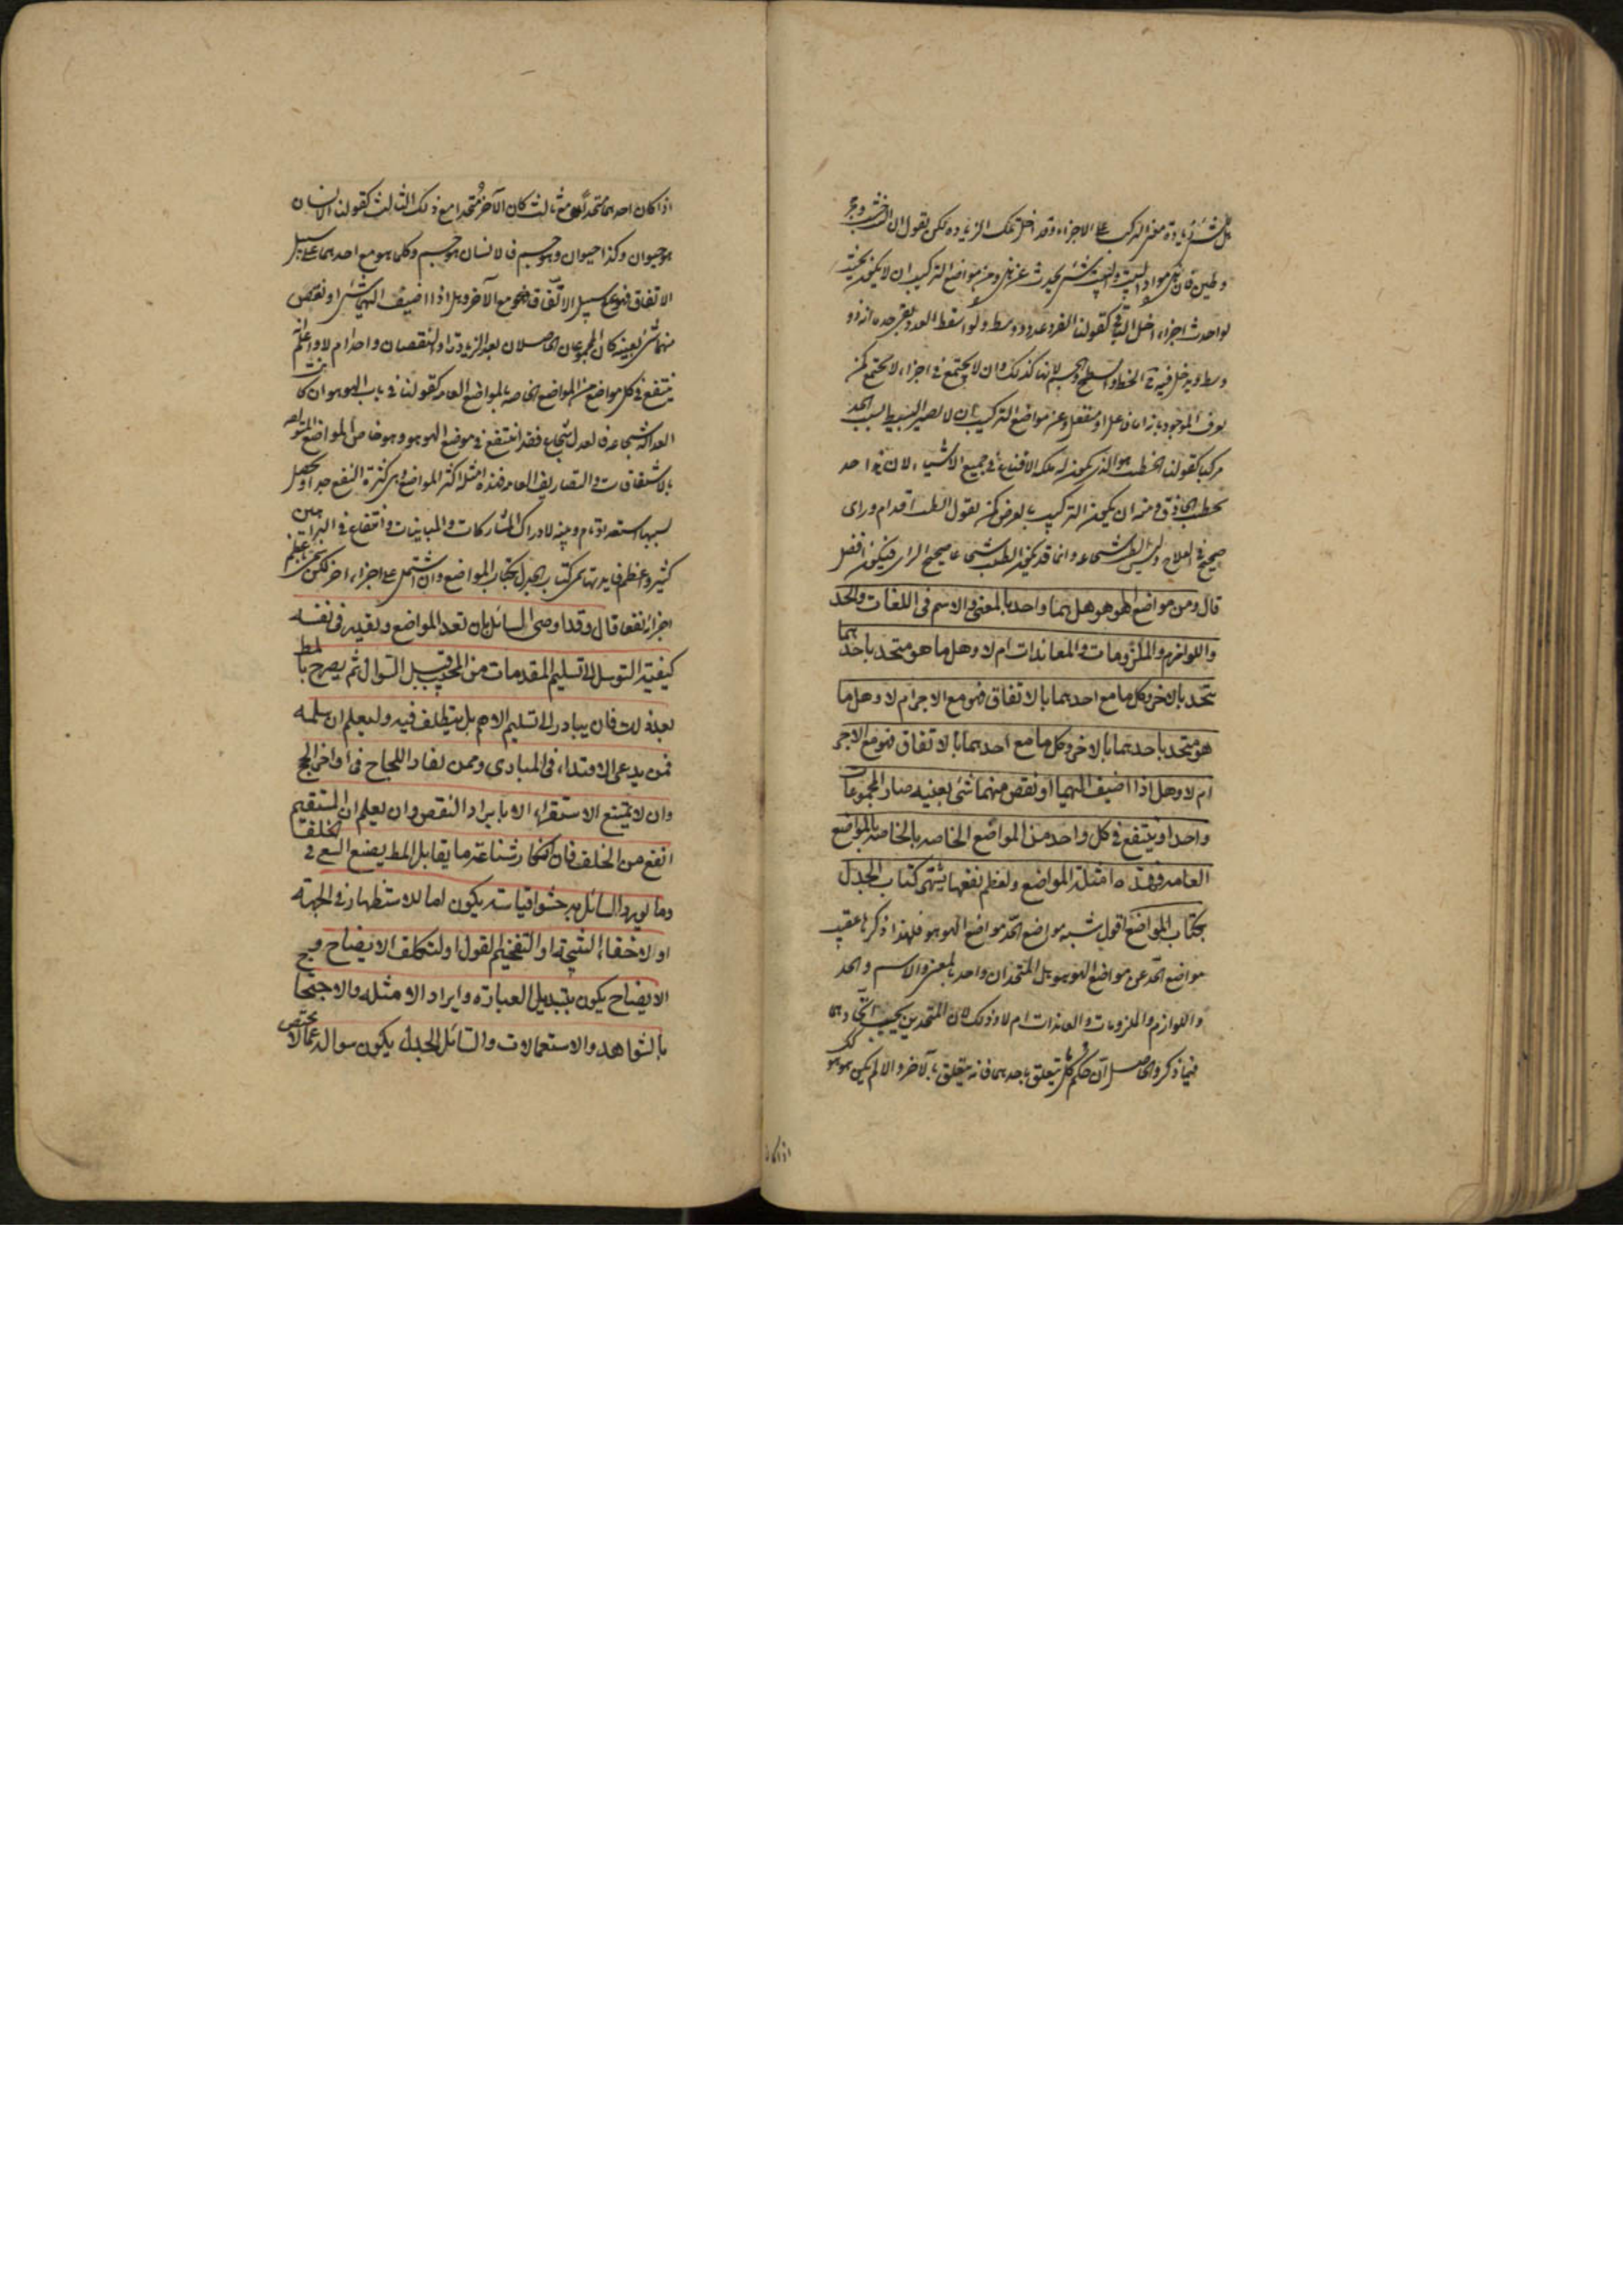 بل شئ زيادة معنى التركيب على الاجزاء وقد اخل بتلك الزيادة كمن يقول ان البيت خشب وحجر
وطين فان هى مواد البيت والبيت شئ يحدث عن هذه ومن مواضع التركيب ان لا يكون بحيث
لو احدث اجزاء اخل الباقى كقولنا الفرد عدد ذو وسط ولو اسقط العدد بقى حده انه ذو
وسط ويدخل فيه الخط والسطح والجسم لانها كذلك وان لا يجتمع فى اجزاء لا تجتمع كمن
يعرف الموجود بانه اما فاعل او منفعل ومن مواضع التركيب ان لا يصير البسيط بسبب الحد
مركبا كقولنا الخطيب هو الذى يكون له ملكة الاقناع فى جميع الاشياء لان
الحاذق ومنه ان يكون التركيب بالعرض كمن يقول الطب اقدام وراى
صحيح فى العلاج وليس الطب شجاعة وانما قد يكون الطبيب شجاعا صحيح الراى فيكون افضل
قال ومن مواضع الهو هو هل هما واحد بالمعنى والاسم فى اللغات والحد
واللوازم والملزومات والمعاندات ام لا وهل ما هو متحد باحدهما
يتحد بالاخر وكل ما مع احدهما بالاتفاق فهو مع الاخر ام لا وهل ما
هو متحد باحدهما بالاخر وكل ما مع احدهما بالاتفاق فهو مع الاخر
ام لا وهل اذا اضيف اليهما او نقص منهما شئ بعينه صار المجموعات
واحدا وينتفع فى كل واحد من المواضع الخاصه بالخاصه بالمواضع
العامه فهذه امثلة المواضع ولعظم نفعها يسمى كتاب الجدل
بكتاب المواضع اقول يشبه مواضع الحد مواضع الهو هو فلهذا ذكرها عقيب
مواضع الحد عن مواضع الهو هو هل المتحدان واحد بالمعنى والاسم والحد
واللوازم والملزومات والمعاندات ام لا وذلك لان المتحدين يجب اتحادهما
فيما ذكر والحاصل ان كل حكم يتعلق باحدهما فانه يتعلق بالآخر والا لم يكن هو هو
اذا كان
اذا كان احدهما متحدا مع ثالث كان الآخر متحدا مع ذلك الثالث كقولنا الانسان
هو حيوان وكذا حيوان وهو جسم فالانسان هو جسم وكلما هو مع احدهما على سبيل
الاتفاق فهو على سبيل الاتفاق مع الآخر وهل اذا اضيف اليهما شئ او نقص
منهما شئ بعينه كان المجموعان الحاصلان بعد الزيادة او النقصان واحدا ام لا واعلم
ينتفع فى كل مواضع من المواضع الخاصه بالمواضع العامه كقولنا فى باب الهو هو ان كانت
العدالة شجاعة فالعدل شجاع فقد انتفع فى موضع الهو هو وهو خاص المواضع المتعلقه
بالاشتقاقات والتصاريف العامه فهذه امثلة اكثر المواضع وهى كثيرة النفع جدا ويحصل
بسببها استعداد تام وتنبه لادراك المشاركات والمباينات وانتفاع فى البراهين
كثير ولعظم فايدتها سمى كتاب الجدل بكتاب المواضع وان اشتمل على اجزاء اخر لكن باعظم
اجزائه نفعا قال وقد اوصى السائل بان يعد المواضع ويقيد فى نفسه
كيفية التوسل الى تسليم المقدمات من المجيب قبل السوال ثم يصرح بالمط
بعد ذلك فان يبادر الى تسليم الاهم بل يتطلف فيه وليعلم ان سلمه
فمن يدعى الاقتداء فى المبادى وممن نفاد اللجاج فى اواخر الحج
وان لا يمتنع الاستقراء الا بايراد النقص وان يعلم ان المستقيم
انفع من الخلف فان انكار شناعة ما يقابل المط يضيع السعى فى الخلف
وما يورد السائل من حشو اقياسته يكون اما للاستظهار فى الحجة
او لاخفاء النتيجة او التفخيم القول او لتكلف الايضاح و
الايضاح يكون بتبديل العبارة وايراد الامثلة والاحتجاج
بالشواهد والاستعمالات والسائل الجدلى يكون سواله عما لا يختص